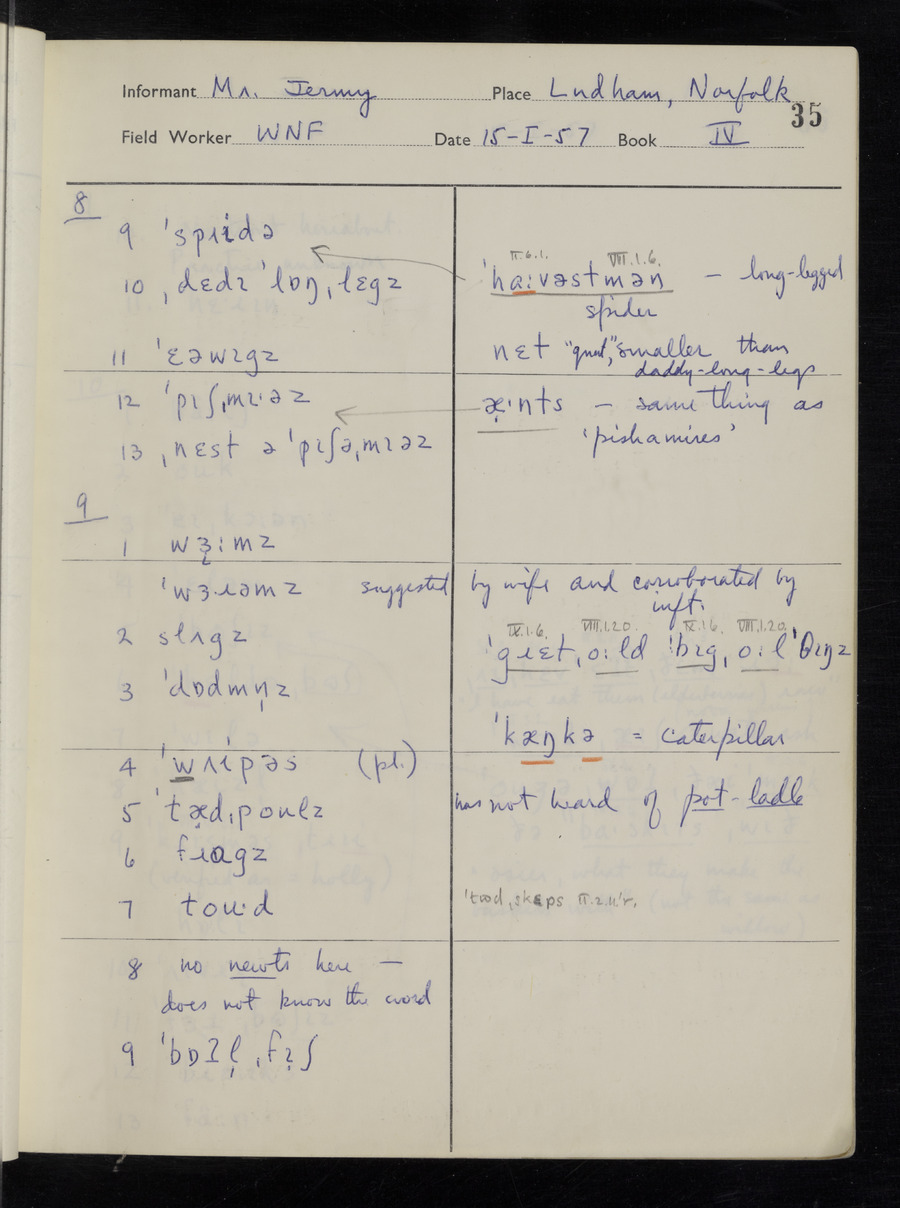 Informant Mr. Jermy Place Ludham, Norfolk
35
Field Worker WNF Date 15-I-57 Book IV
8
9 ˈspɹidə
II.6.1. VIII.1.6.
10 ˌdɛdɪ ˈlɒŋˌlɛgz ˈhaːvəstmən — long-legged
spider
11 ˈɛəwɪgz nɛt "gnat," smaller than
daddy-long-legs
12 ˈpɪʃˌmɪ·əz æ̣·nts — same thing as
13 ˌnɛst ə ˈpɪʃəˌmɪəz 'pishamires'
9
1 wɜ̣ːmz
ˈwɜ·ɹəmz suggested by wife and corroborated by
inft.
IX.1.6. VIII.1.20. IX.1.6. VIII.1.20.
2 slʌgz ˈgɹɛt ˌoːld ˈbɪg ˌoːl ˈθɪŋz
3 ˈdɒdmn̩z
ˈkæŋkə = caterpillar
4 ˈwʌipəs (pl.)
5 ˈtæ̣dˌpoulz has not heard of pot-ladle
6 fɹɒgz
7 tou·d ˈtɷdˌskɛps II.2.11'r.
8 no newts here —
does not know the word
9 ˈbɒʔl̩ ˌfɪ̣ʃ